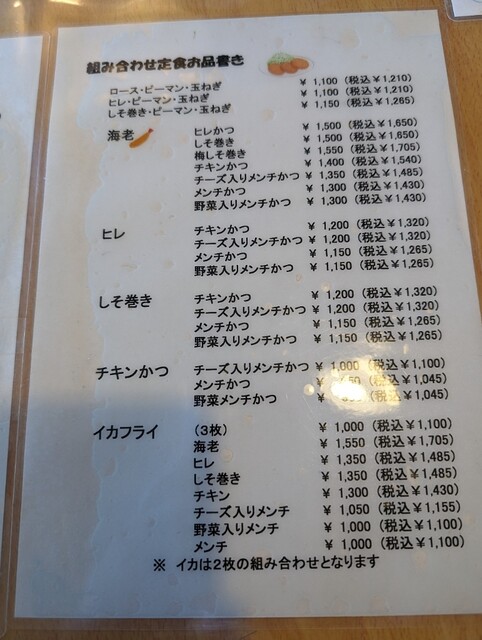 組み合わせ定食お品書き
ロース・ピーマン・玉ねぎ ￥1,100（税込￥1,210）
ヒレ・ピーマン・玉ねぎ ￥1,100（税込￥1,210）
しそ巻き・ピーマン・玉ねぎ ￥1,150（税込￥1,265）
海老 ヒレかつ ￥1,500（税込￥1,650）
しそ巻き ￥1,500（税込￥1,650）
梅しそ巻き ￥1,550（税込￥1,705）
チキンかつ ￥1,400（税込￥1,540）
チーズ入りメンチかつ ￥1,350（税込￥1,485）
メンチかつ ￥1,300（税込￥1,430）
野菜入りメンチかつ ￥1,300（税込￥1,430）
ヒレ チキンかつ ￥1,200（税込￥1,320）
チーズ入りメンチかつ ￥1,200（税込￥1,320）
メンチかつ ￥1,150（税込￥1,265）
野菜入りメンチかつ ￥1,150（税込￥1,265）
しそ巻き チキンかつ ￥1,200（税込￥1,320）
チーズ入りメンチかつ ￥1,200（税込￥1,320）
メンチかつ ￥1,150（税込￥1,265）
野菜入りメンチかつ ￥1,150（税込￥1,265）
チキンかつ チーズ入りメンチかつ ￥1,000（税込￥1,100）
メンチかつ ￥（税込￥1,045）
野菜メンチかつ ￥（税込￥1,045）
イカフライ （3枚） ￥1,000（税込￥1,100）
海老 ￥1,550（税込￥1,705）
ヒレ ￥1,350（税込￥1,485）
しそ巻き ￥1,350（税込￥1,485）
チキン ￥1,300（税込￥1,430）
チーズ入りメンチ ￥1,050（税込￥1,155）
野菜入りメンチ ￥1,000（税込￥1,100）
メンチ ￥1,000（税込￥1,100）
※ イカは2枚の組み合わせとなります